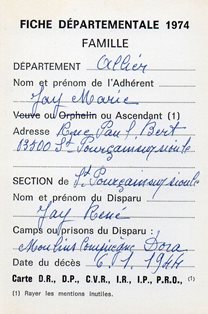 FICHE DÉPARTEMENTALE 1974
FAMILLE
DÉPARTEMENT Allier
Nom et prénom de l'Adhérent
Jay Marie
Veuve ou Orphelin ou Ascendant (1)
Adresse Rue Paul Bert
03500 St Pourçain sur Sioule
SECTION de St Pourçain sur Sioule
Nom et prénom du Disparu
Jay René
Camps ou prisons du Disparu :
Moulins Compiegne Dora
Date du décès 6.1.1944
Carte D.R., D.P., C.V.R., I.R., I.P., P.R.O., (1)
(1) Rayer les mentions inutiles.